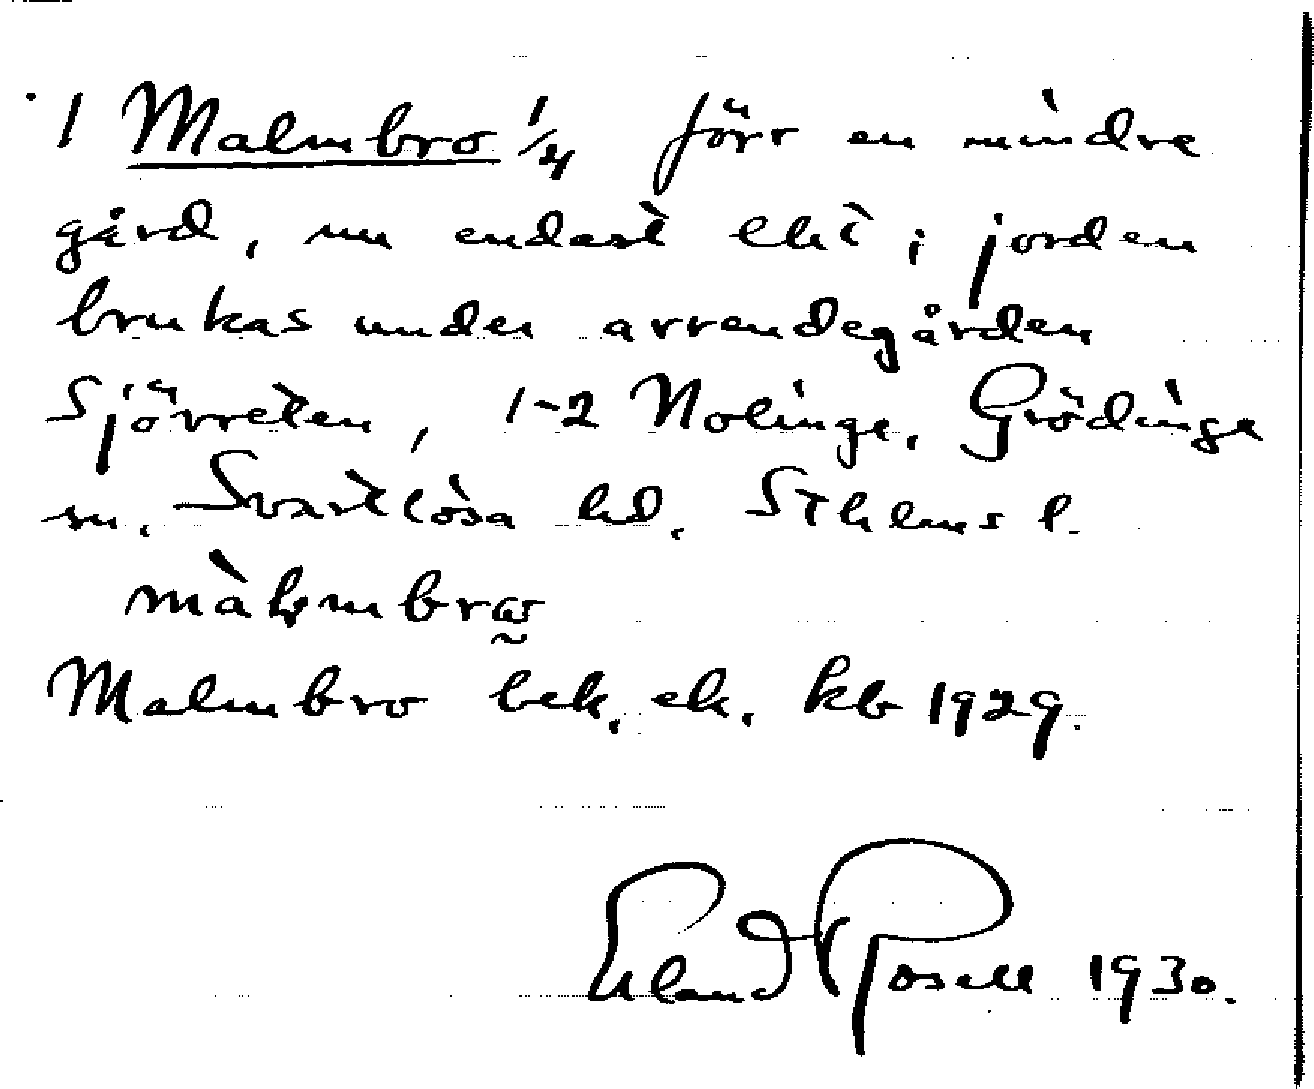 1 Malmbro 1/4 förr en mindre
gård, nu endast ett; jorden
brukas under arrendegården
Sjövreten, 1-2 Nolinge, Grödinge
sn. Svartlösa hd. Sthlms l.
màlmbrω̰
Malmbro bek. ek. kb 1929.
Erland Rosell 1930.